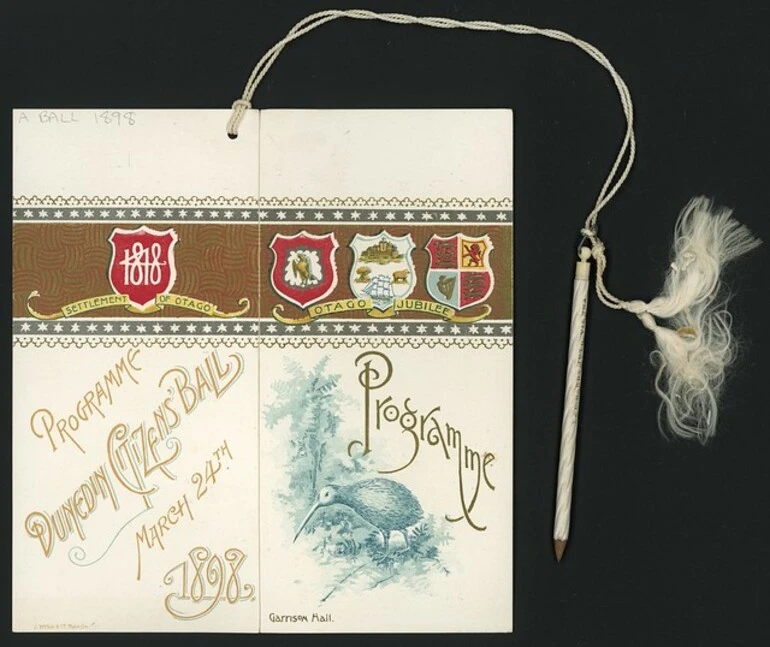 A BALL 1898
1848
SETTLEMENT OF OTAGO
OTAGO JUBILEE
PROGRAMME
DUNEDIN CITIZENS' BALL
MARCH 24TH
1898.
Programme
Garrison Hall.